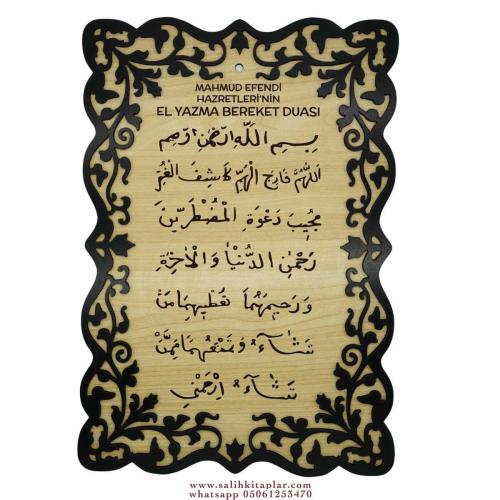 MAHMUD EFENDİ
HAZRETLERİ'NİN
EL YAZMA BEREKET DUASI
بِسْمِ اللَّهِ الرَّحْمٰنِ الرَّحِيمِ
اَللّٰهُمَّ فَارِجَ الْهَمِّ كَاشِفَ الْغَمِّ
مُجِيبَ دَعْوَةِ الْمُضْطَرِّينَ
رَحْمٰنَ الدُّنْيَا وَالْاٰخِرَةِ
وَرَحِيمَهُمَا تُعْطِيهِمَا مَنْ
تَشَاءُ وَتَمْنَعُهُمَا مِمَّنْ
تَشَاءُ اِرْحَمْنِي
www.salihkitaplar.com
whatsapp 05061253470